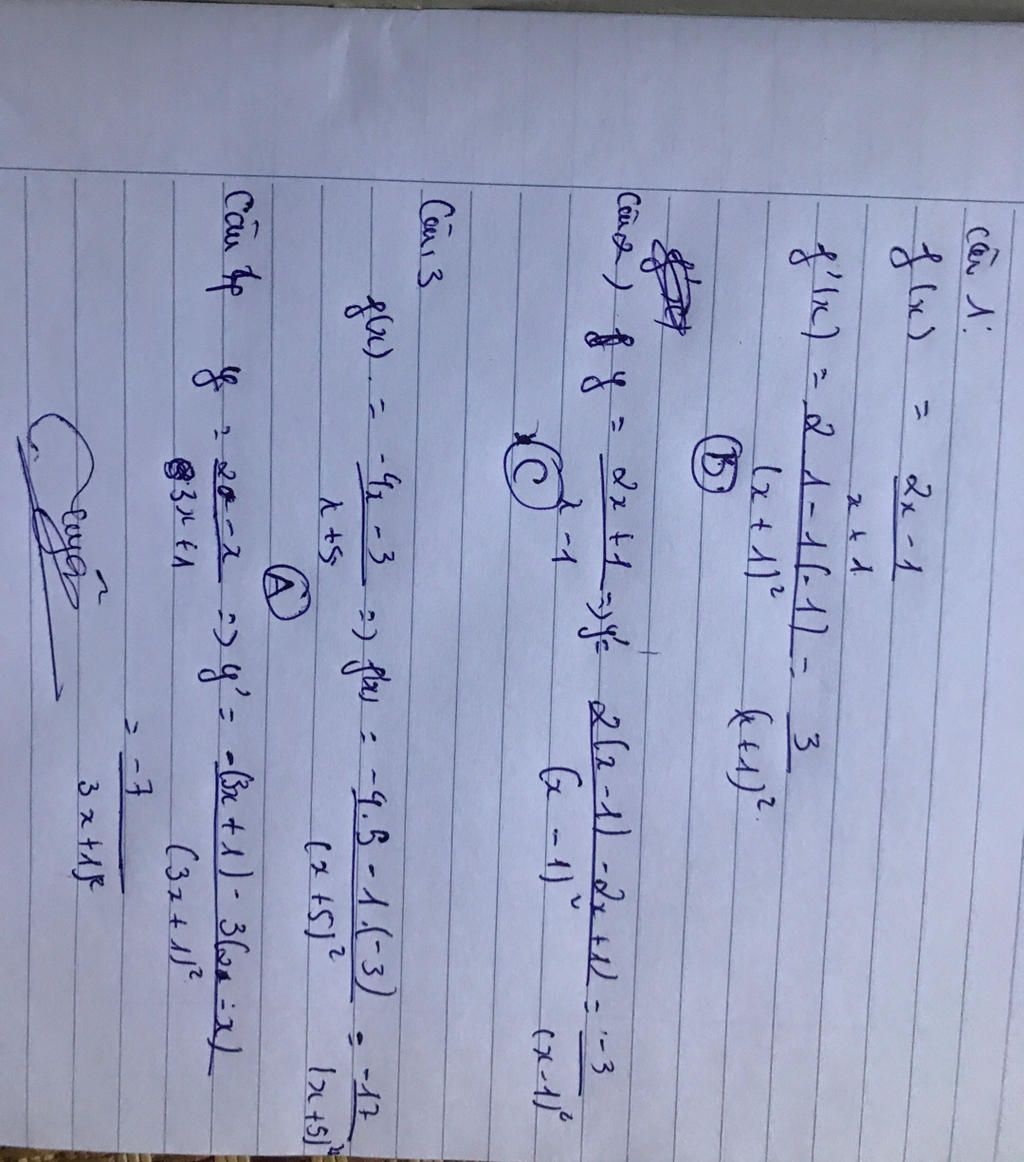 Câu 1:
f(x) = 2x - 1 / x + 1
f'(x) = 2 1 - 1(-1) / (x + 1)² = 3 / (x + 1)².
B
Câu 2) y = 2x + 1 / x - 1 => y' = 2(x - 1) - 2x + 1) / (x - 1)² = -3 / (x - 1)²
C
Câu 3
f(x) = -4x - 3 / x + 5 => f(x) = -4.5 - 1.(-3) / (x + 5)² = -17 / (x + 5)²
A
Câu 4 y = 2 - x / 3x + 1 => y' = -(3x + 1) - 3(2 - x) / (3x + 1)²
= -7 / 3x + 1)²